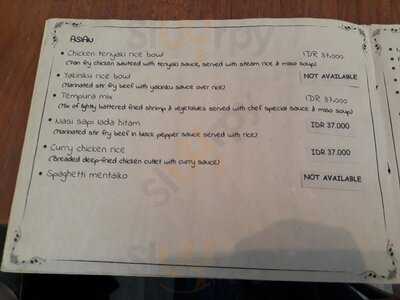 ASIAN
• Chicken teriyaki rice bowl IDR 37.000
(Pan fry chicken sauteed with teriyaki sauce, served with steam rice & miso soup)
• Yakiniku rice bowl NOT AVAILABLE
(Marinated stir fry beef with yakiniku sauce over rice)
• Tempura mix IDR 37.000
(Mix of lightly battered fried shrimp & vegetables served with chef special sauce & miso soup)
• Nasi sapi lada hitam IDR 37.000
(Marinated stir fry beef in black pepper sauce served with rice)
• Curry chicken rice IDR 37.000
(Breaded deep-fried chicken cutlet with curry sauce)
• Spaghetti mentaiko NOT AVAILABLE